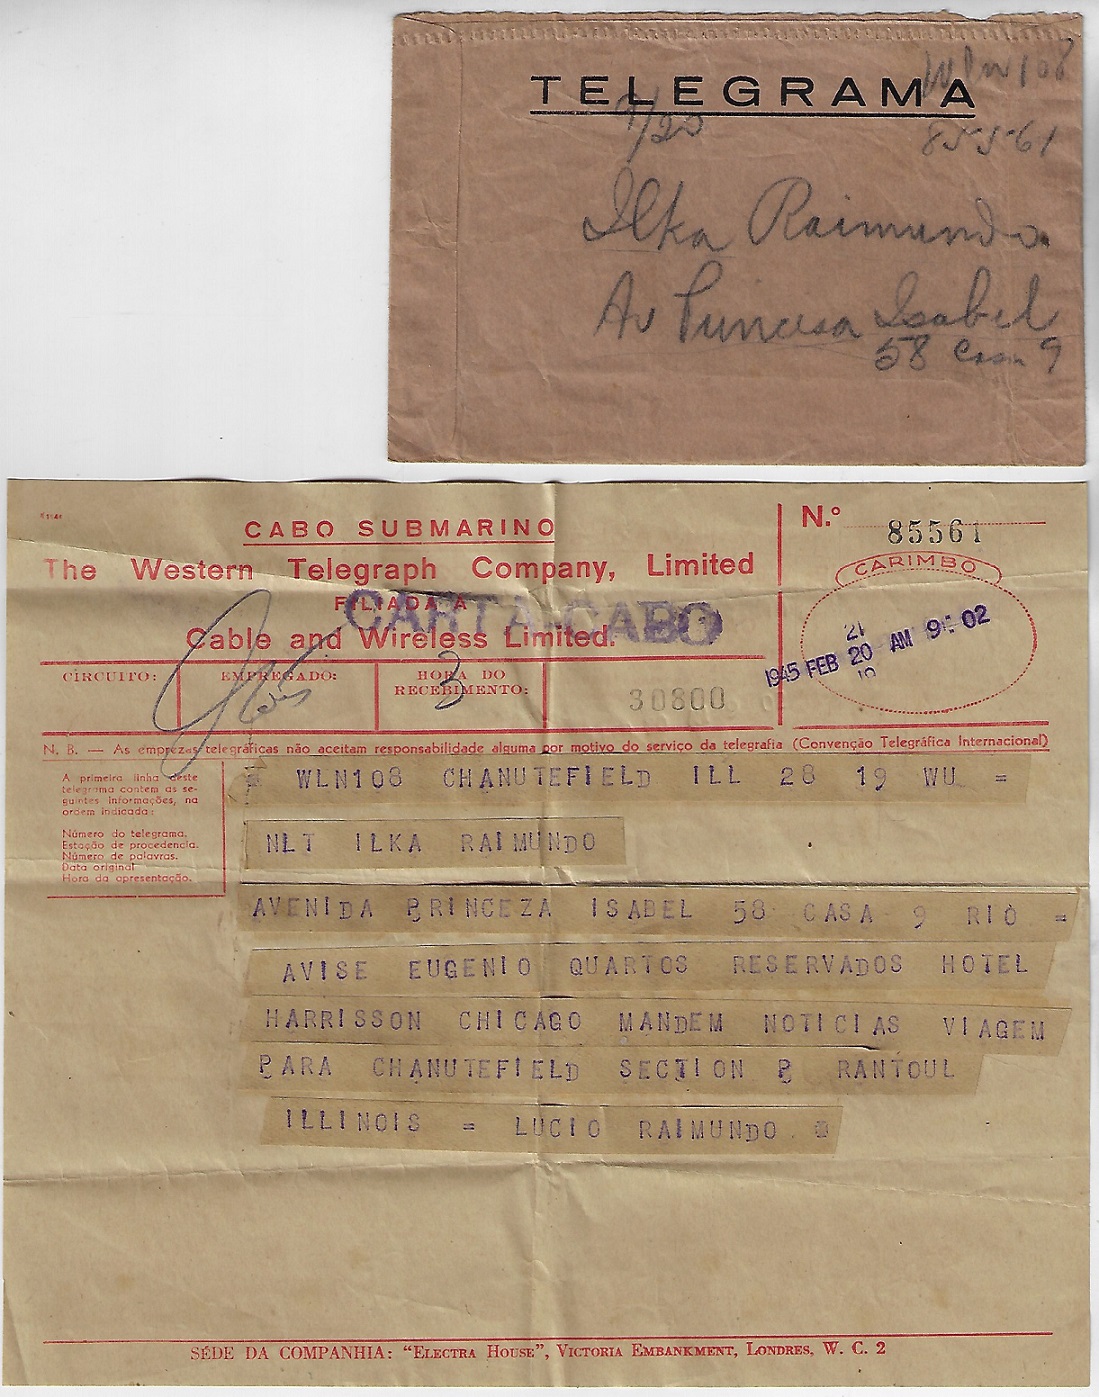 TELEGRAMA
WLN 108
9/20
85561
Ilka Raimundo.
Av Princesa Isabel
58 Casa 9
CABO SUBMARINO
The Western Telegraph Company, Limited
FILIADA A
CARTA-CABO
Cable and Wireless Limited.
N.º 85561
CARIMBO
21
1945 FEB 20 AM 9:02
19
CIRCUITO:
EMPREGADO:
HORA DO RECEBIMENTO:
3
30800
N. B. — As emprezas telegráficas não aceitam responsabilidade alguma por motivo do serviço da telegrafia (Convenção Telegráfica Internacional)
A primeira linha deste
telegrama contem as se-
guintes informações, na
ordem indicada:
Número do telegrama.
Estação de procedencia.
Número de palavras.
Data original
Hora da apresentação.
WLN108 CHANUTEFIELD ILL 28 19 WU =
NLT ILKA RAIMUNDO
AVENIDA PRINCEZA ISABEL 58 CASA 9 RIO =
AVISE EUGENIO QUARTOS RESERVADOS HOTEL
HARRISSON CHICAGO MANDEM NOTICIAS VIAGEM
PARA CHANUTEFIELD SECTION B RANTOUL
ILLINOIS = LUCIO RAIMUNDO
SÉDE DA COMPANHIA: "ELECTRA HOUSE", VICTORIA EMBANKMENT, LONDRES, W. C. 2